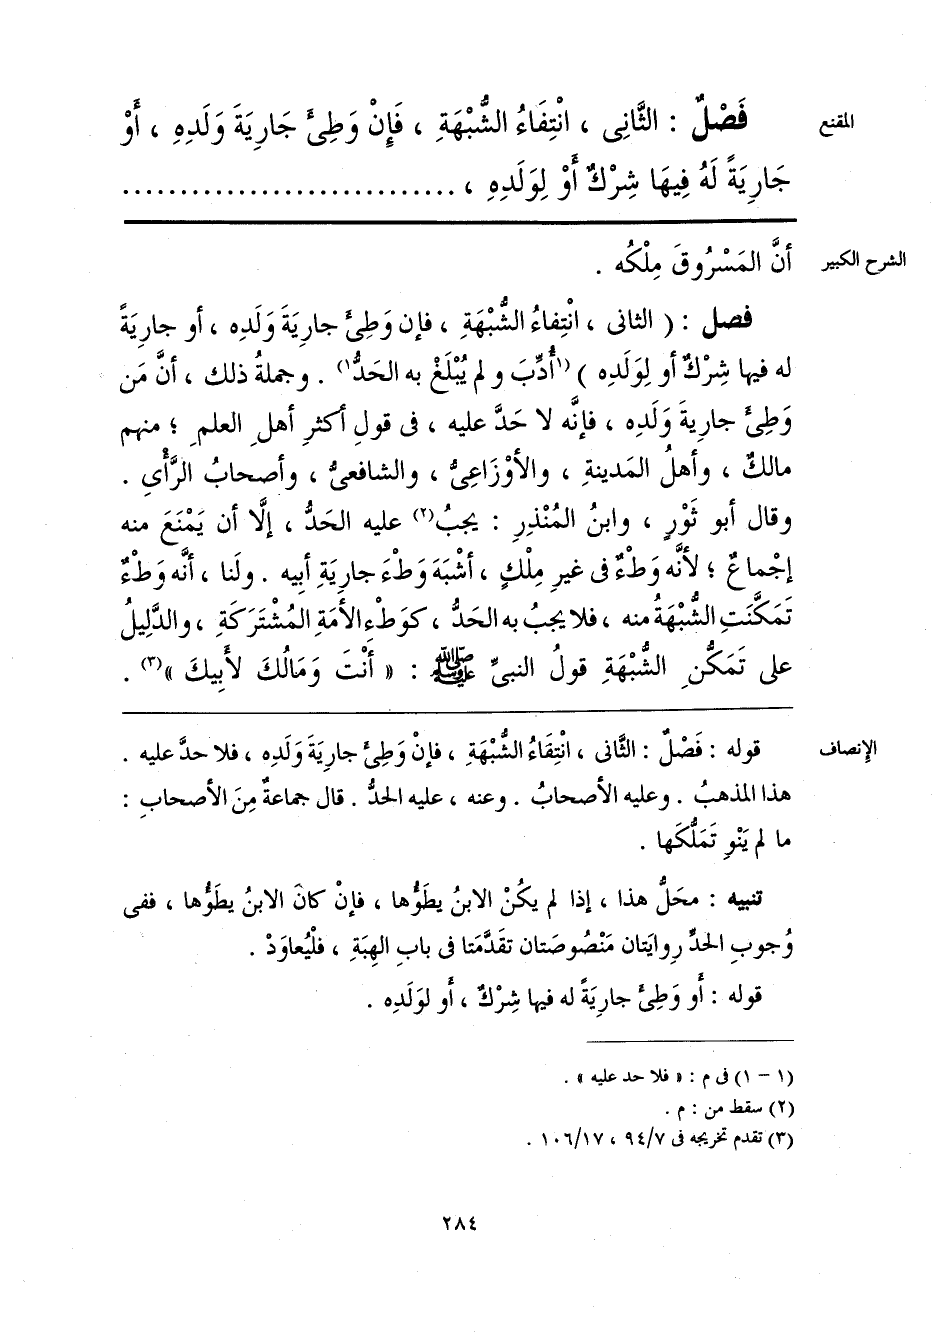 المقنع
فَصْلٌ : الثَّانِى ، انْتِفَاءُ الشُّبْهَةِ ، فَإِنْ وَطِئَ جَارِيَةَ وَلَدِهِ ، أَوْ
جَارِيَةً لَهُ فِيهَا شِرْكٌ أَوْ لِوَلَدِهِ ، ............................
الشرح الكبير
أنَّ المَسْرُوقَ مِلْكُه .
فصل : ( الثانى ، انْتِفاءُ الشُّبْهَةِ ، فإن وَطِئَ جارِيَةَ وَلَدِه ، أو جارِيَةً
له فيها شِرْكٌ أو لِوَلَدِه ) (١أُدِّبَ و لم يُبْلَغْ به الحَدُّ١) . وجملةُ ذلك ، أنَّ مَن
وَطِئَ جارِيةَ وَلَدِه ، فإنَّه لا حَدَّ عليه ، فى قولِ أكثرِ أهلِ العلمِ ؛ منهم
مالكٌ ، وأهلُ المَدينةِ ، والأوْزَاعِىُّ ، والشافعىُّ ، وأصحابُ الرَّأْىِ .
وقال أبو ثَوْرٍ ، وابنُ المُنْذِرِ : يجبُ(٢) عليه الحَدُّ ، إلَّا أن يَمْنَعَ منه
إجْماعٌ ؛ لأنَّه وَطْءٌ فى غيرِ مِلْكٍ ، أشْبَهَ وَطْءَ جارِيَةِ أبيه . ولَنا ، أنَّه وَطْءٌ
تَمَكَّنَتِ الشُّبْهَةُ منه ، فلا يجبُ به الحَدُّ ، كوَطْءِ الأمَةِ المُشْتَرَكَةِ ، والدَّلِيلُ
على تَمَكُّنِ الشُّبْهَةِ قولُ النبىِّ ﷺ : « أَنْتَ وَمَالُكَ لأَبِيكَ »(٣) .
الإنصاف
قوله : فَصْلٌ : الثَّانى ، انْتِفَاءُ الشُّبْهَةِ ، فإنْ وَطِئَ جارِيَةَ وَلَدِه ، فلا حدَّ عليه .
هذا المذهبُ . وعليه الأصحابُ . وعنه ، عليه الحدُّ . قال جماعةٌ مِنَ الأصحابِ :
ما لم يَنْوِ تَمَلُّكَها .
تنبيه : محَلُّ هذا ، إذا لم يكُنْ الابنُ يطَؤُها ، فإنْ كانَ الابنُ يطَؤُها ، ففى
وُجوبِ الحدِّ رِوايَتان مَنْصُوصَتان تقَدَّمَتا فى بابِ الهِبَةِ ، فلْيُعاوَدْ .
قوله : أَو وَطِئَ جارِيَةً له فيها شِرْكٌ ، أَو لوَلَدِه .
(١ - ١) فى م : « فلا حد عليه » .
(٢) سقط من : م .
(٣) تقدم تخريجه فى ٩٤/٧ ، ١٠٦/١٧ .
٢٨٤